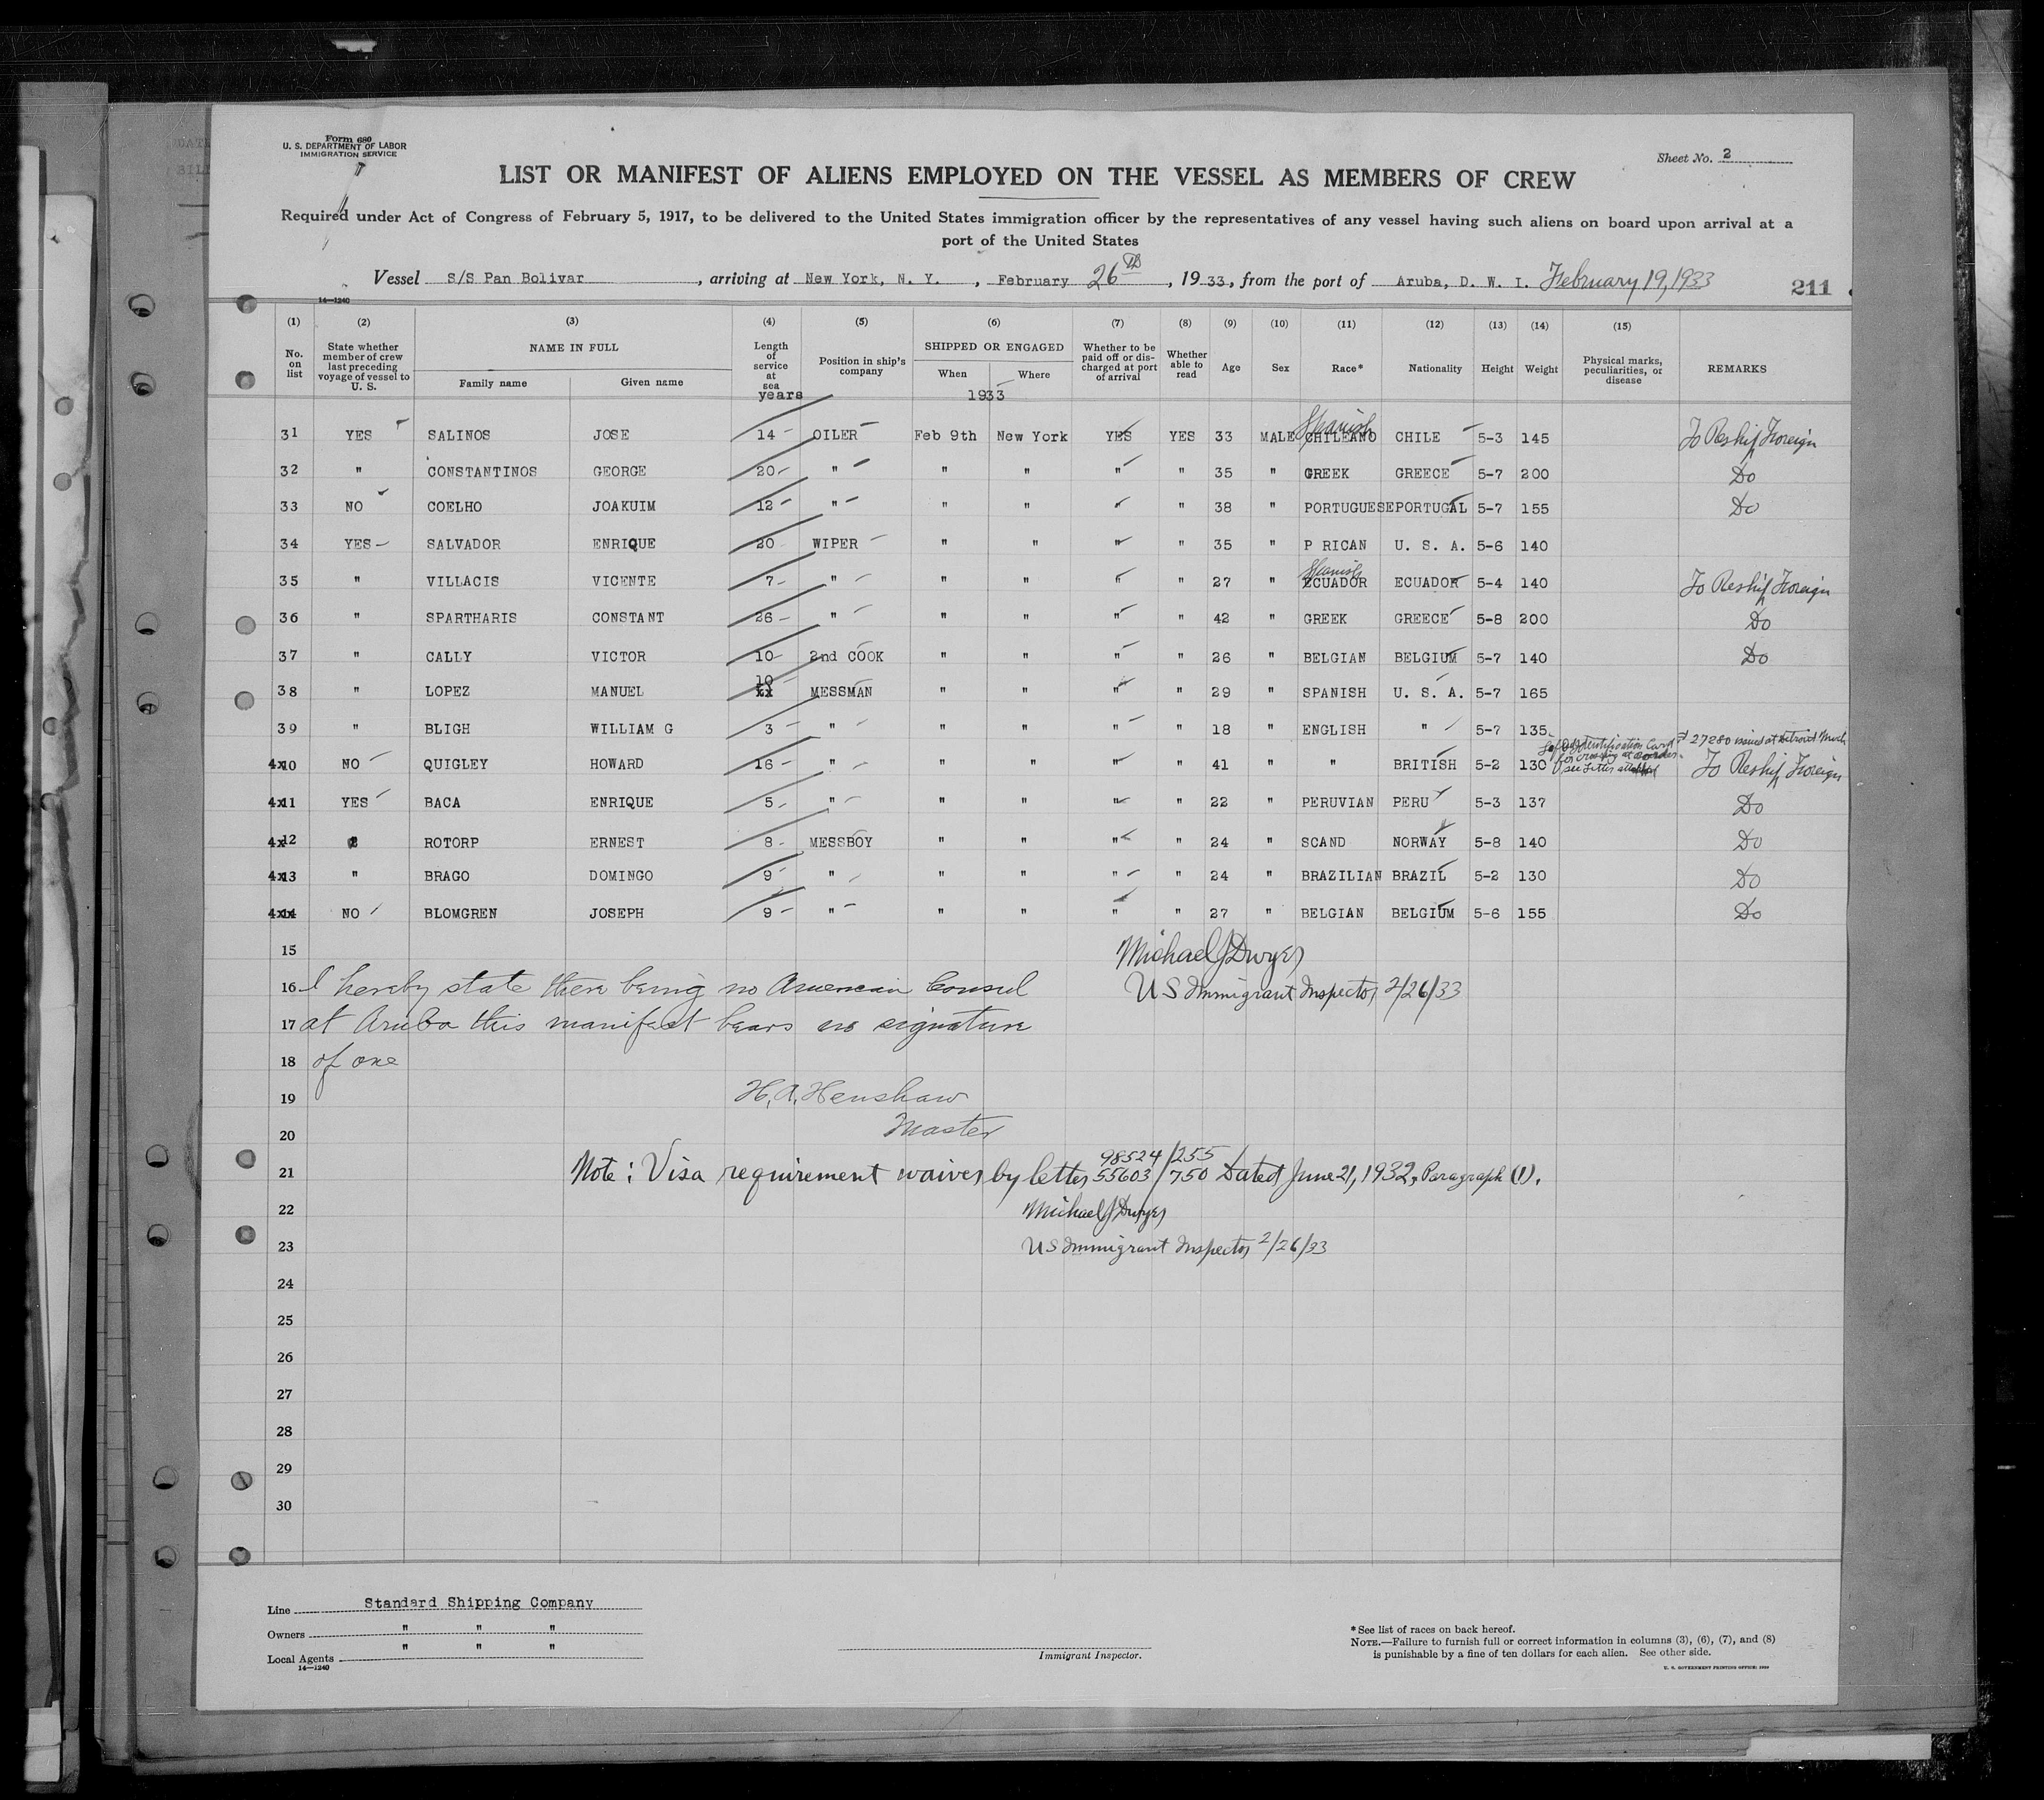 Form 680
U. S. DEPARTMENT OF LABOR
IMMIGRATION SERVICE
Sheet No. 2
LIST OR MANIFEST OF ALIENS EMPLOYED ON THE VESSEL AS MEMBERS OF CREW
Required under Act of Congress of February 5, 1917, to be delivered to the United States immigration officer by the representatives of any vessel having such aliens on board upon arrival at a
port of the United States
Vessel S/S Pan Bolivar, arriving at New York, N. Y., February 26th, 1933, from the port of Aruba, D. W. I. February 19, 1933
211
14—1240
(1) (2) (3) (4) (5) (6) (7) (8) (9) (10) (11) (12) (13) (14) (15)
No. on list
State whether member of crew last preceding voyage of vessel to U. S.
NAME IN FULL
Family name Given name
Length of service at sea
years
Position in ship's company
SHIPPED OR ENGAGED
When Where
1933
Whether to be paid off or discharged at port of arrival
Whether able to read
Age Sex Race* Nationality Height Weight
Physical marks, peculiarities, or disease
REMARKS
31 YES SALINOS JOSE 14 OILER Feb 9th New York YES YES 33 MALE CHILEANO Spanish CHILE 5-3 145 To Reship Foreign
32 " CONSTANTINOS GEORGE 20 " " " " " 35 " GREEK GREECE 5-7 200 Do
33 NO COELHO JOAKUIM 12 " " " " " 38 " PORTUGUESE PORTUGAL 5-7 155 Do
34 YES SALVADOR ENRIQUE 20 WIPER " " " " 35 " P RICAN U. S. A. 5-6 140
35 " VILLACIS VICENTE 7 " " " " " 27 " ECUADOR Spanish ECUADOR 5-4 140 To Reship Foreign
36 " SPARTHARIS CONSTANT 26 " " " " " 42 " GREEK GREECE 5-8 200 Do
37 " CALLY VICTOR 10 2nd COOK " " " " 26 " BELGIAN BELGIUM 5-7 140 Do
38 " LOPEZ MANUEL 10 MESSMAN " " " " 29 " SPANISH U. S. A. 5-7 165
39 " BLIGH WILLIAM G 3 " " " " " 18 " ENGLISH " 5-7 135
Identification Card # 27280 issued at Detroit Mich
for crossing at Border
see letter attached
4x10 NO QUIGLEY HOWARD 16 " " " " " 41 " " BRITISH 5-2 130 To Reship Foreign
4x11 YES BACA ENRIQUE 5 " " " " " 22 " PERUVIAN PERU 5-3 137 Do
4x12 " ROTORP ERNEST 8 MESSBOY " " " " 24 " SCAND NORWAY 5-8 140 Do
4x13 " BRAGO DOMINGO 9 " " " " " 24 " BRAZILIAN BRAZIL 5-2 130 Do
4x14 NO BLOMGREN JOSEPH 9 " " " " " 27 " BELGIAN BELGIUM 5-6 155 Do
15 Michael J Dwyer
16 I hereby state there being no American Consul US Immigrant Inspector 2/26/33
17 at Aruba this manifest bears no signature
18 of one
19 H. A. Henshaw
20 Master
98524/255
21 Note: Visa requirement waived by letter 55603/750 Dated June 21, 1932, Paragraph (1).
22 Michael J Dwyer
23 US Immigrant Inspector 2/26/33
24
25
26
27
28
29
30
Line Standard Shipping Company
Owners " " "
Local Agents " " "
14—1240
Immigrant Inspector.
*See list of races on back hereof.
NOTE.—Failure to furnish full or correct information in columns (3), (6), (7), and (8)
is punishable by a fine of ten dollars for each alien. See other side.
U. S. GOVERNMENT PRINTING OFFICE: